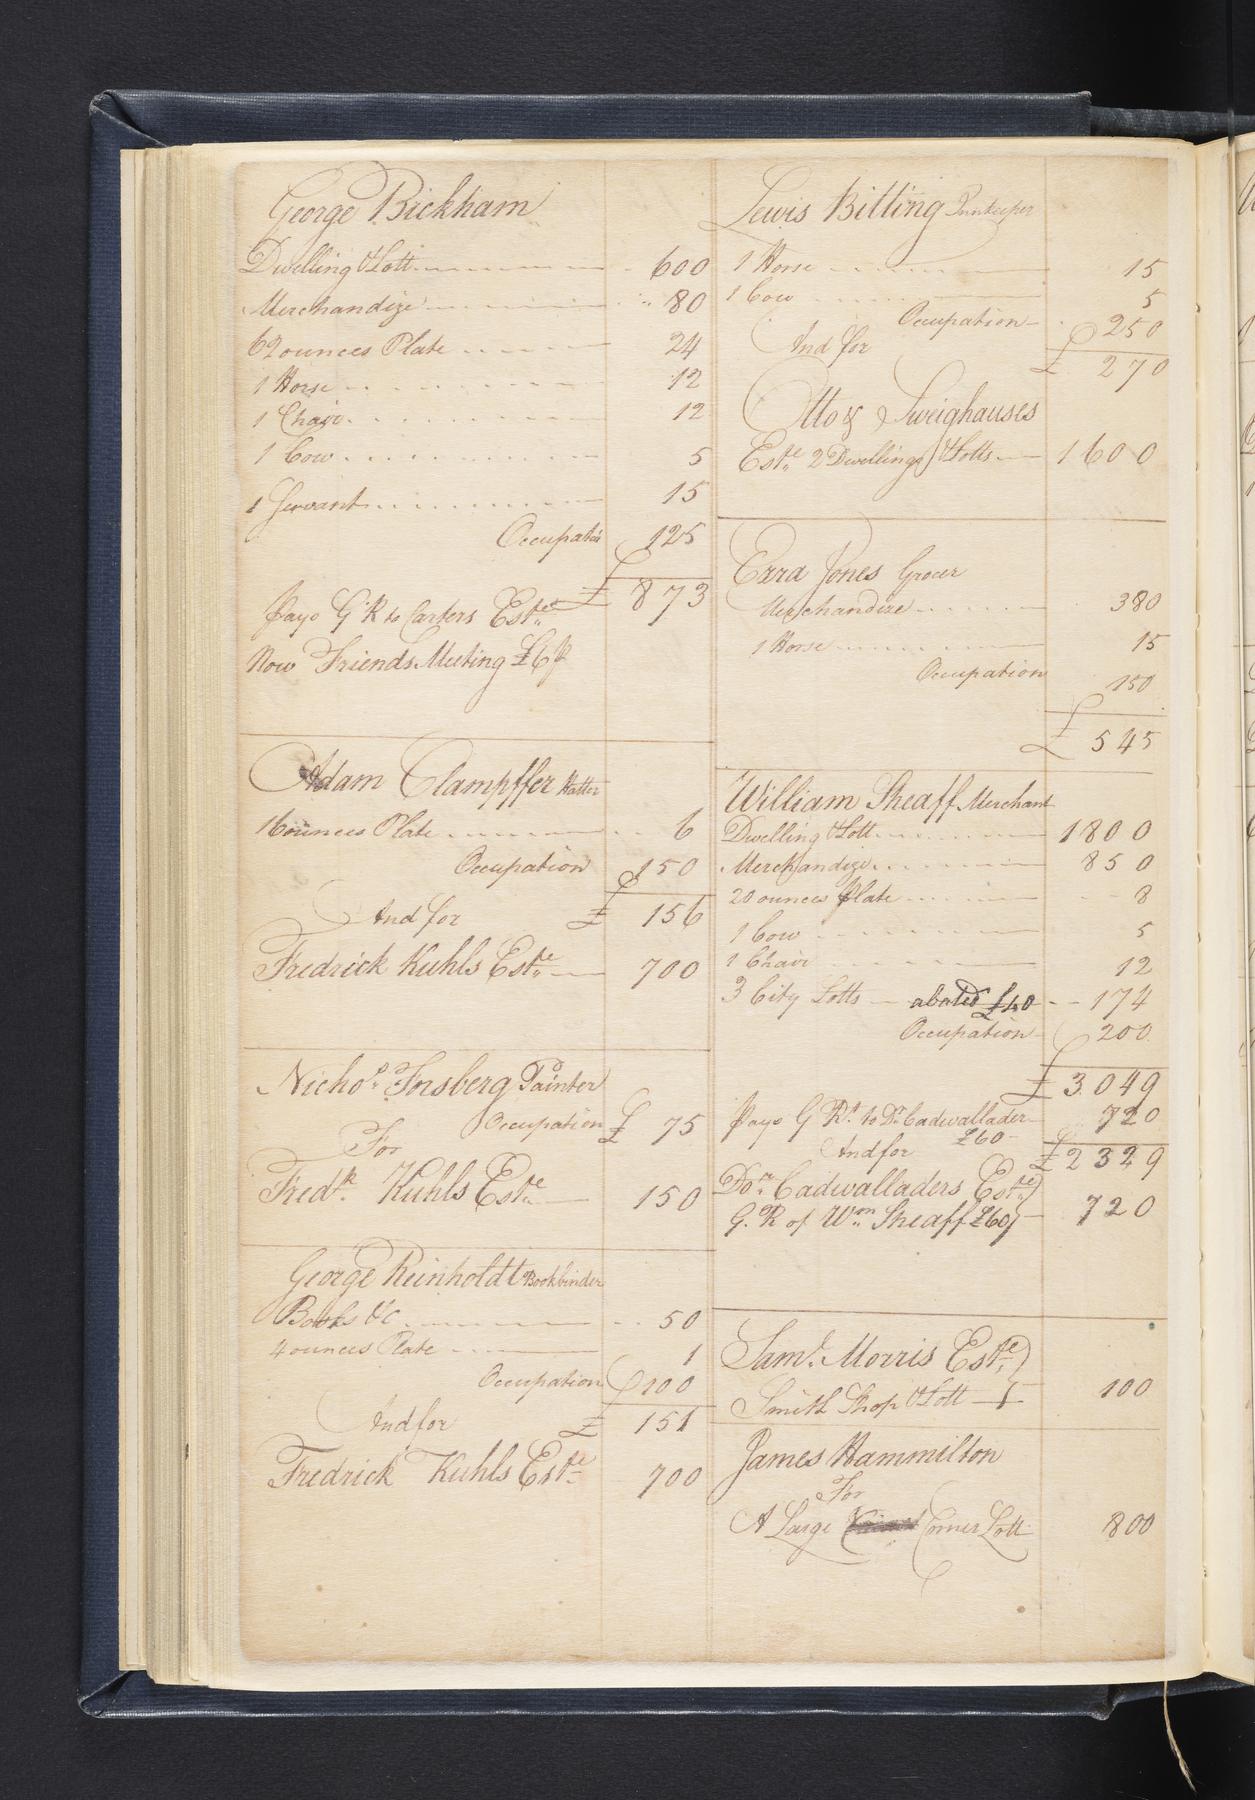 George Bickham
Dwelling & Lott 600
Merchandize 80
62 ounces Plate 24
1 Horse 12
1 Chair 12
1 Cow 5
1 Servant 15
Occupatn 125
£ 873
Pays G R to Carters Este
Now Friends Meeting £6
Adam Clampffer Hatter
16 ounces Plate 6
Occupation 150
And for £ 156
Fredrick Kuhls Este 700
Nichos Insberg Painter
Occupation £ 75
For
Fredk Kuhls Este 150
George Reinholdt Bookbinder
Books &c 50
4 ounces Plate 1
Occupation 100
And for £ 151
Fredrick Kuhls Este 700
Lewis Bitting Innkeeper
1 Horse 15
1 Cow 5
Occupation 250
And for £ 270
Otto & Sweighauses
Este 2 Dwellings & Lotts 1600
Ezra Jones Grocer
Merchandize 380
1 Horse 15
Occupation 150
£ 545
William Sheaff Merchant
Dwelling & Lott 1800
Merchandize 850
20 ounces Plate 8
1 Cow 5
1 Chair 12
3 City Lotts abated £40 174
Occupation 200
£ 3049
Pays G Rt to Dr Cadwallader 720
£60
And for £ 2329
Docr Cadwalladers Este
G. R of Wm Sheaff £60 720
Saml Morris Este
Smith Shop & Lott 100
James Hammilton
For
A Large Corner Lott 800